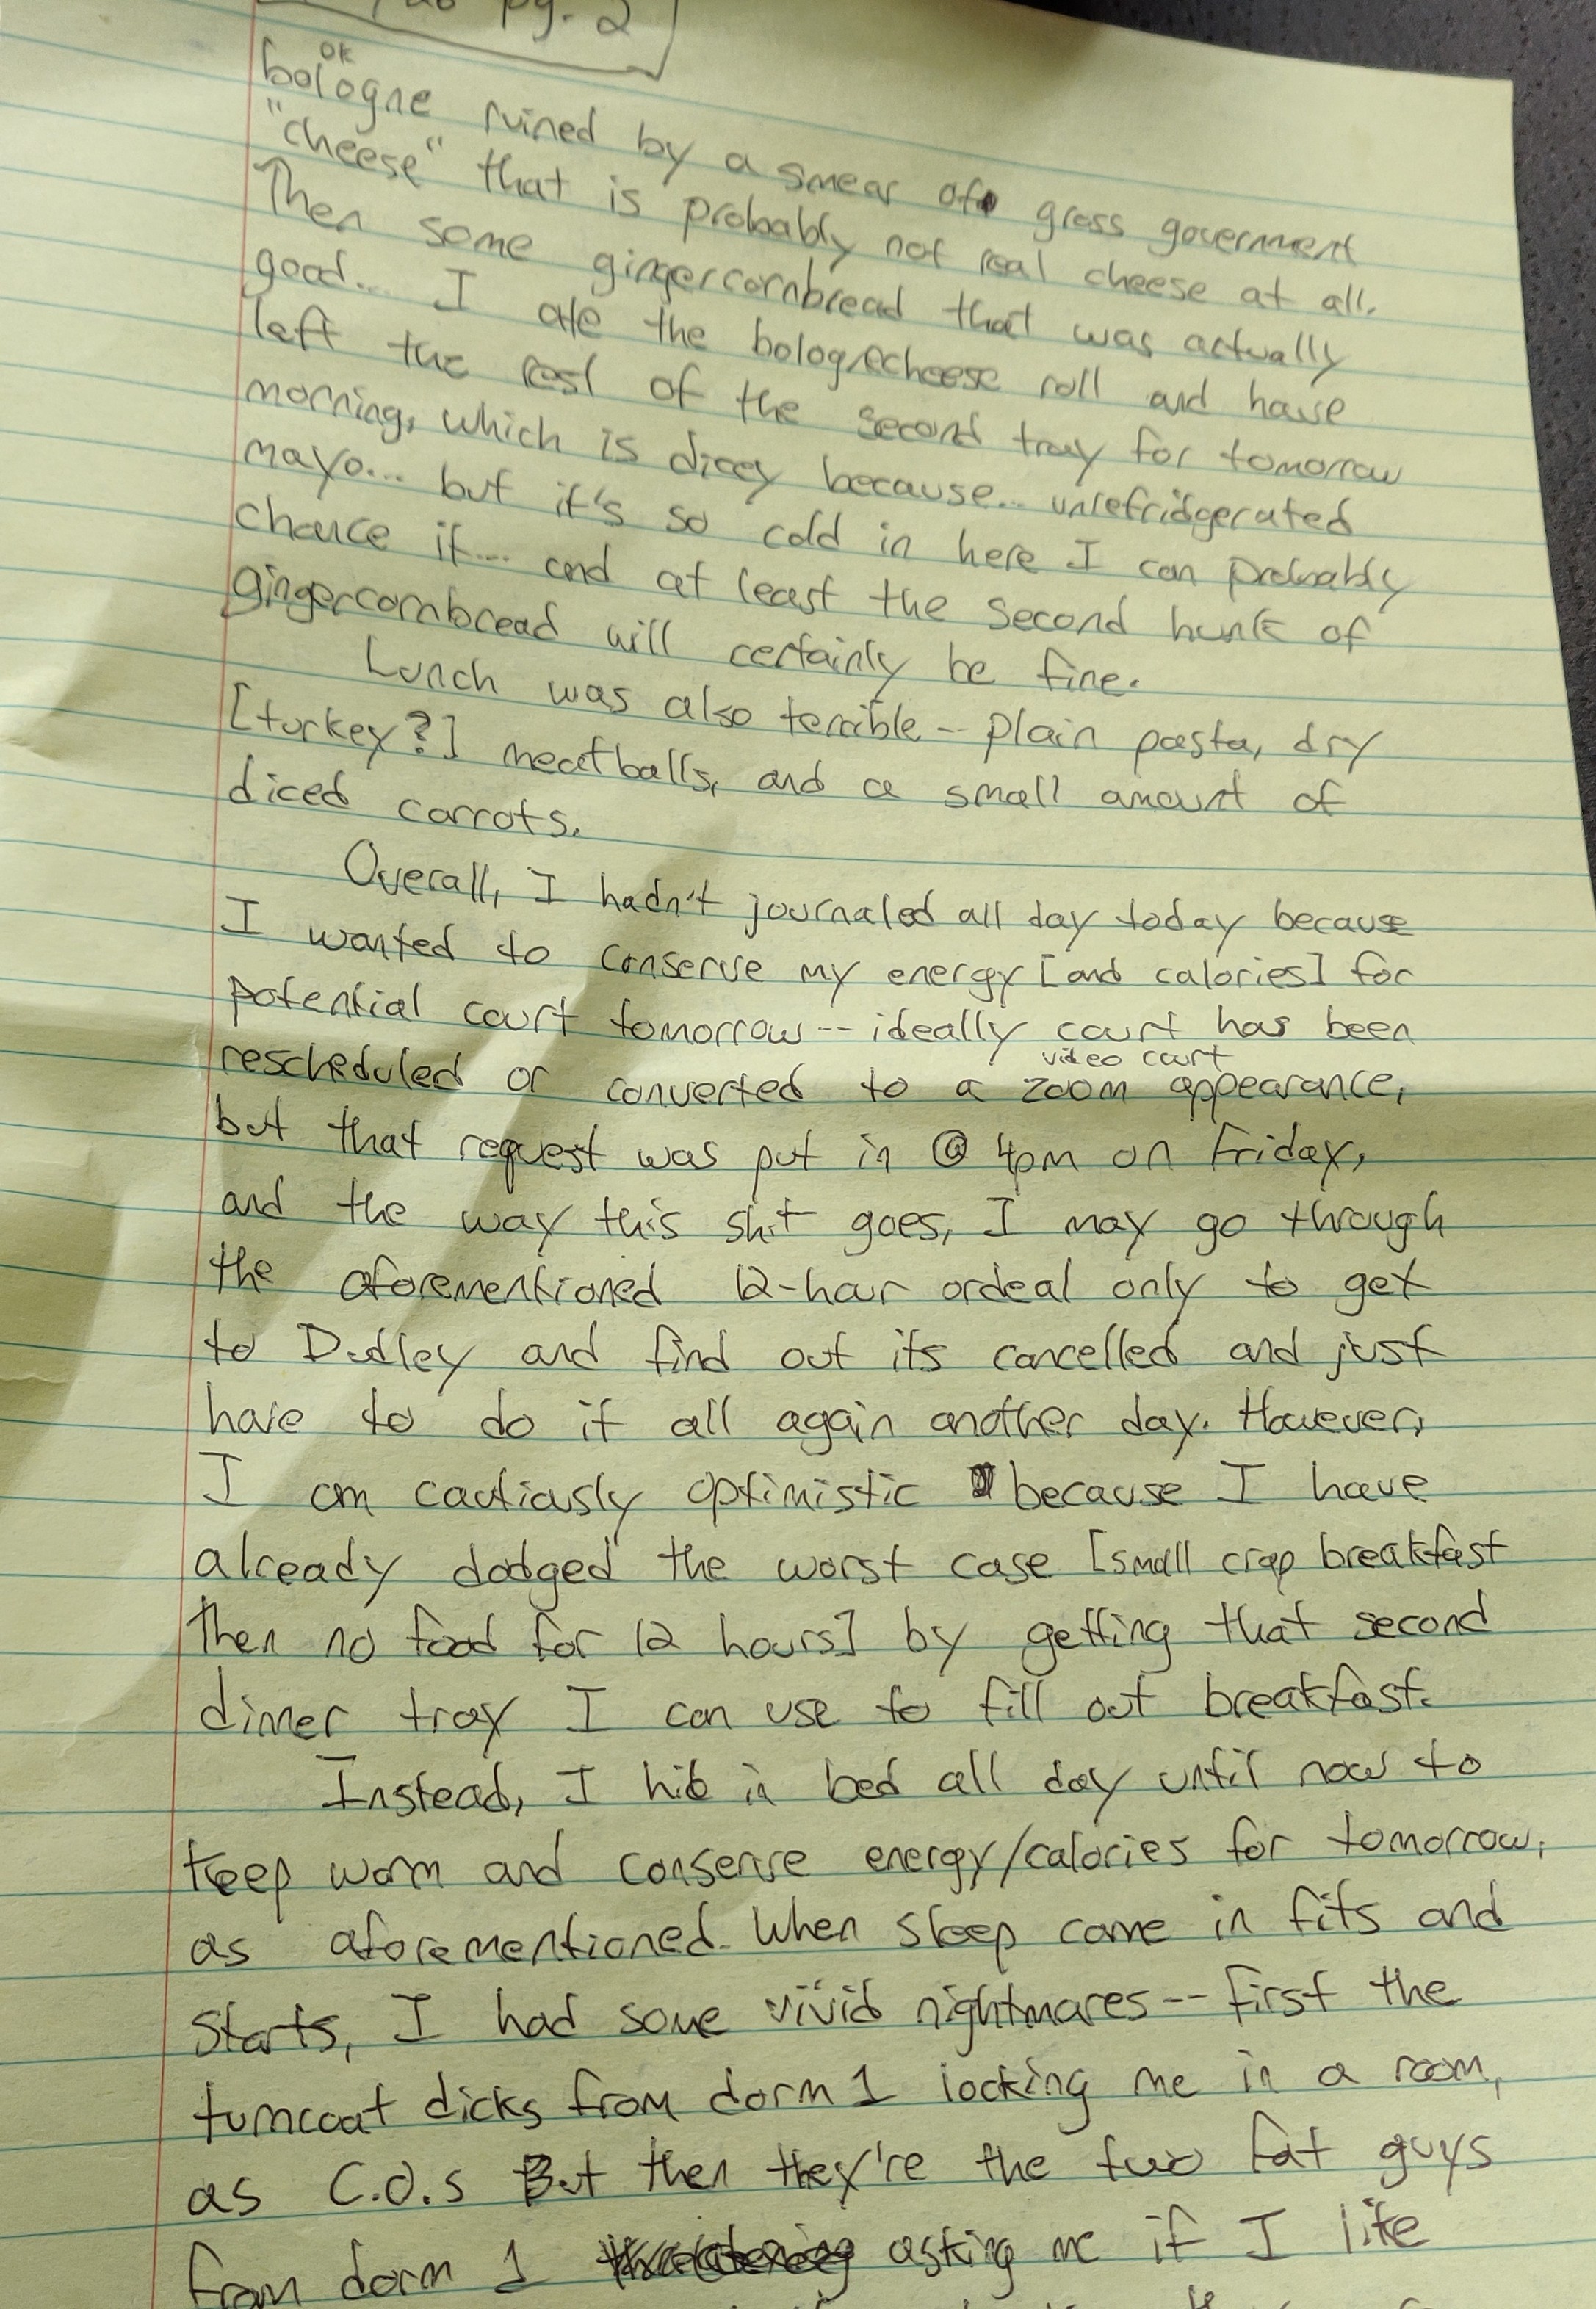 pg. 2
ok
bologne ruined by a smear of gross government
"cheese" that is probably not real cheese at all.
Then some gingercornbread that was actually
good... I ate the bolognecheese roll and have
left the rest of the second tray for tomorrow
morning, which is dicey because... unrefridgerated
mayo... but it's so cold in here I can probably
chance it... and at least the second hunk of
gingercornbread will certainly be fine.
Lunch was also terrible -- plain pasta, dry
[turkey?] meatballs, and a small amount of
diced carrots.
Overall, I hadn't journaled all day today because
I wanted to conserve my energy [and calories] for
potential court tomorrow -- ideally court has been
rescheduled or converted to a zoom video court appearance,
but that request was put in @ 4pm on Friday,
and the way this shit goes, I may go through
the aforementioned 12-hour ordeal only to get
to Dudley and find out its cancelled and just
have to do it all again another day. However,
I am cautiously optimistic because I have
already dodged the worst case [small crap breakfast
then no food for 12 hours] by getting that second
dinner tray I can use to fill out breakfast.
Instead, I hid in bed all day until now to
keep warm and conserve energy/calories for tomorrow,
as aforementioned. When sleep came in fits and
starts, I had some vivid nightmares -- first the
turncoat dicks from dorm 1 locking me in a room,
as C.O.s But then they're the two fat guys
from dorm 1 asking me if I like